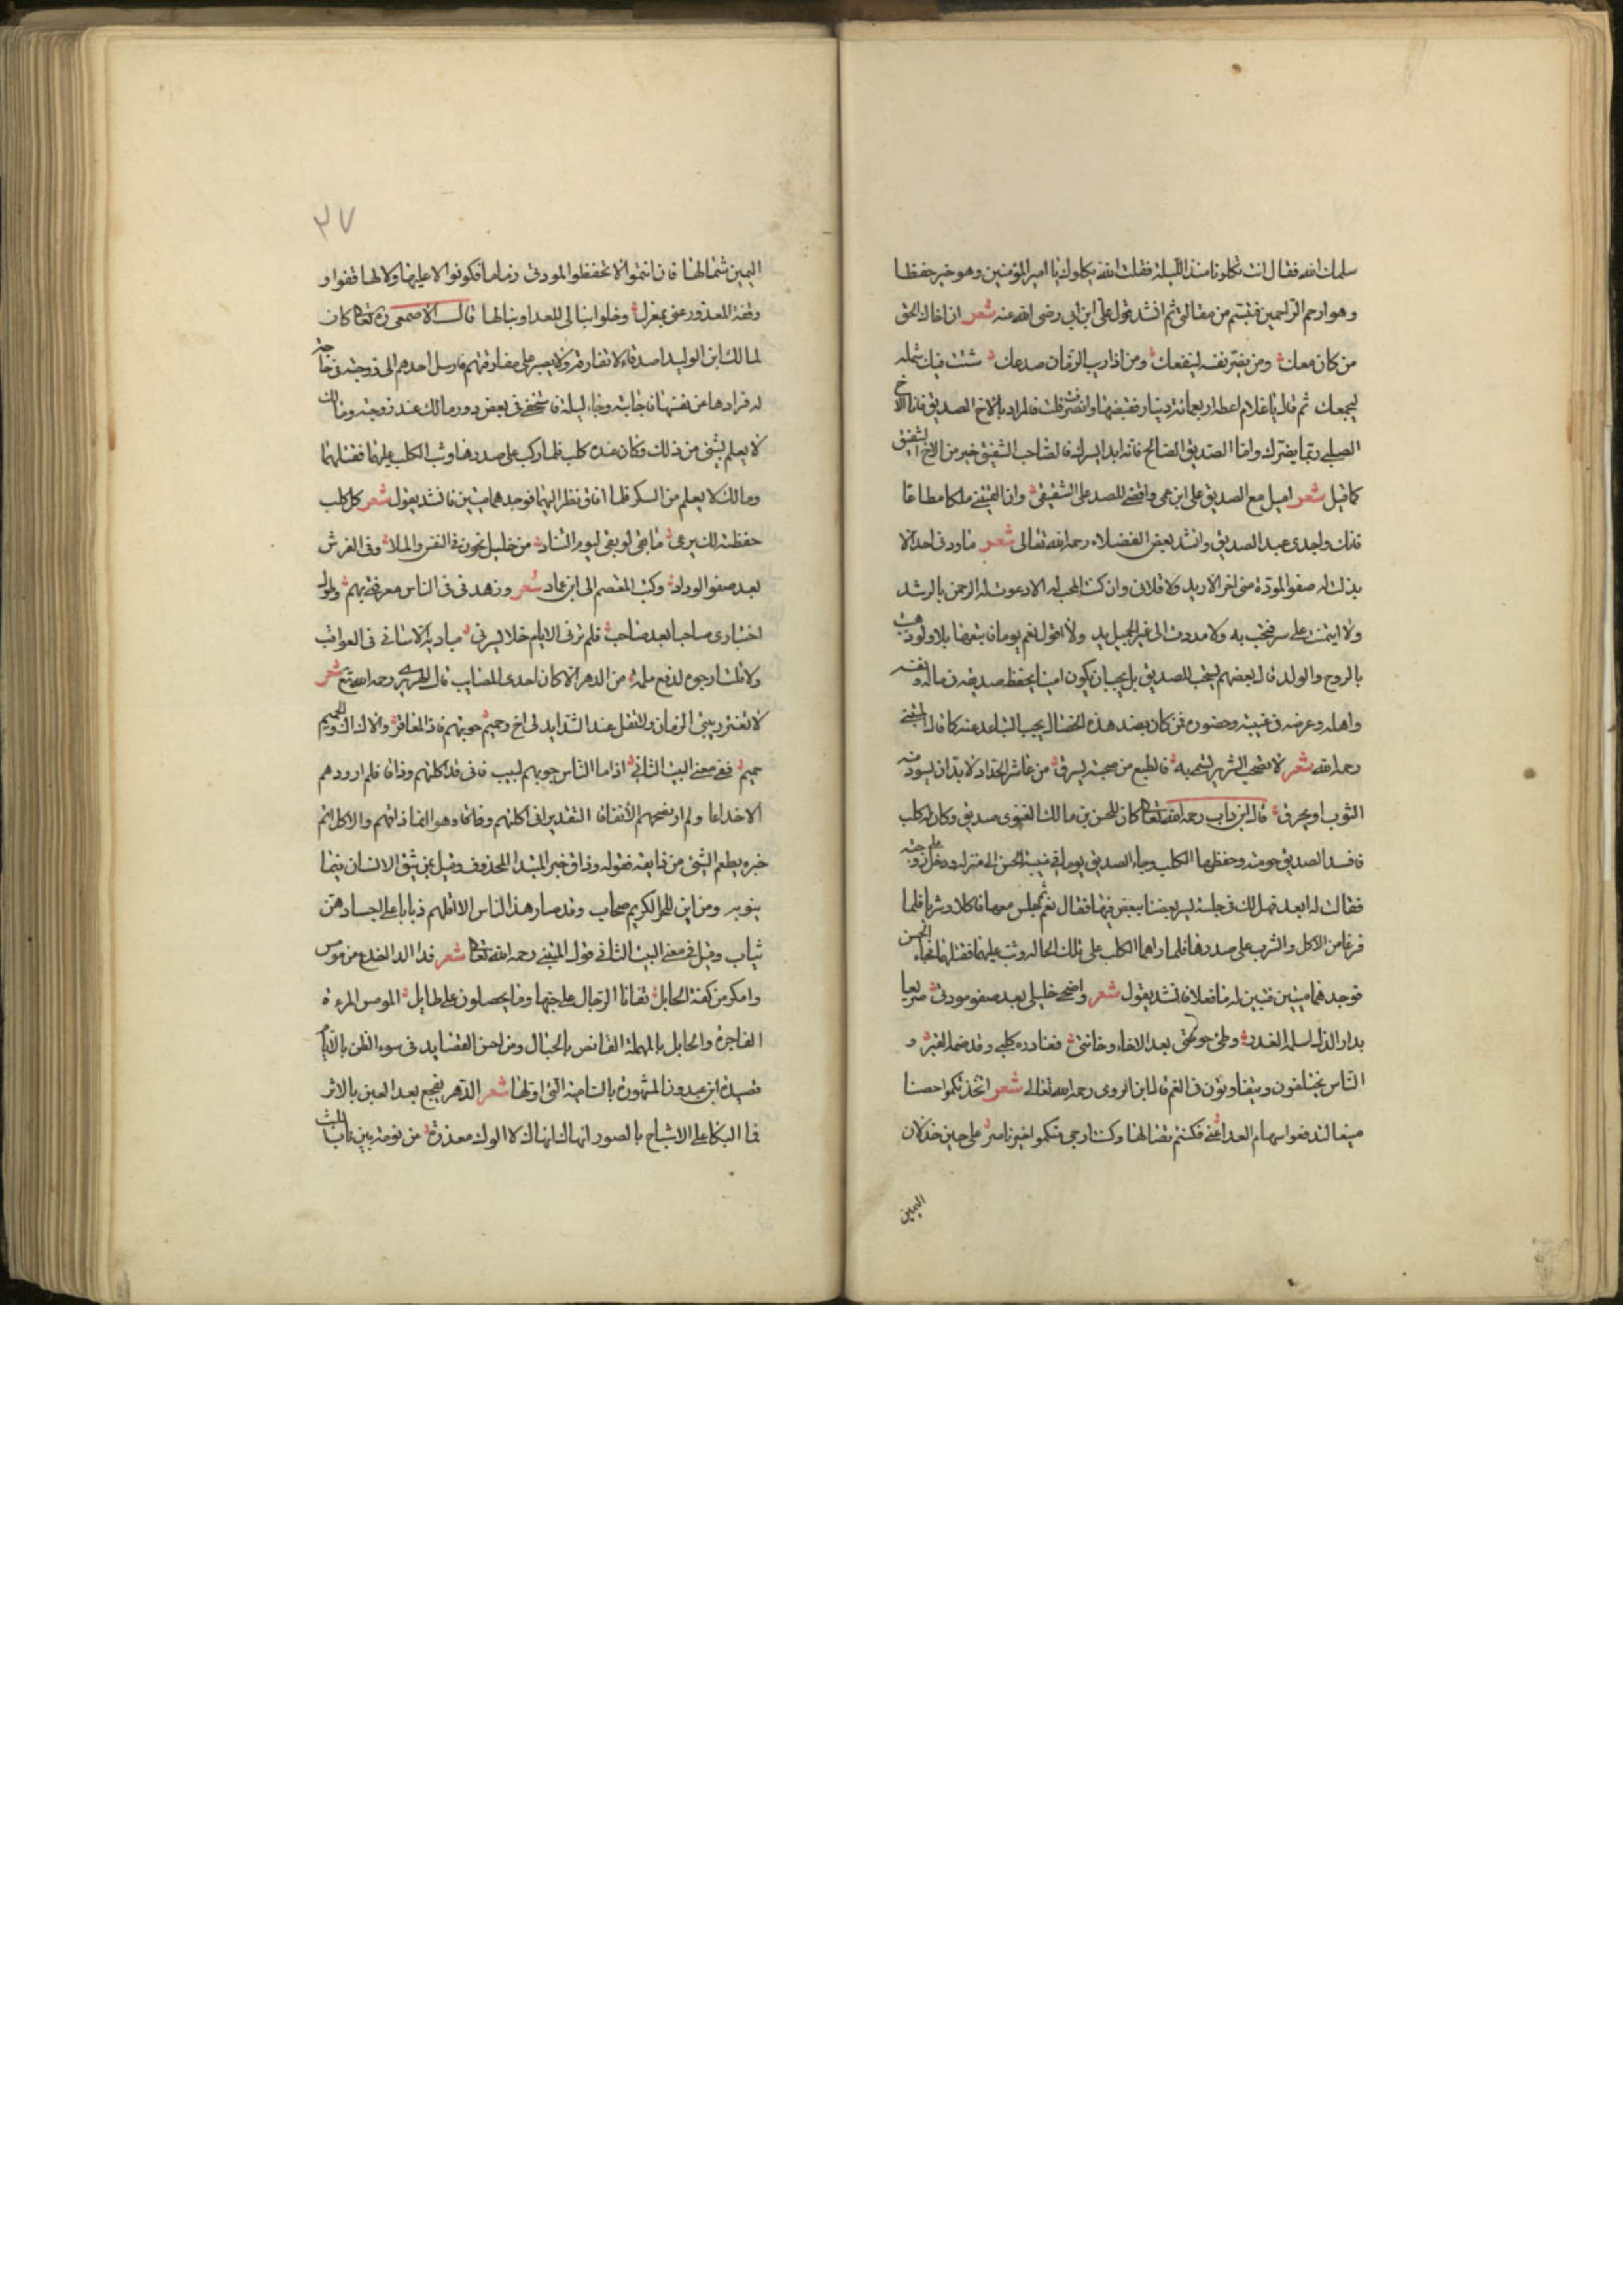 سلمك الله فقال انت تكلونا منذ الليلة فقلت الله يكلوك يا امير المؤمنين وهو خير حفظا
وهو ارحم الراحمين فتبسم من مقالتي ثم انشد قول علي ابن ابي رضى الله عنه شعر ان اخاك الحق
من كان معك ومن يضر نفسه لينفعك ومن اذا ريب الزمان صدعك شتت فيك شمله
ليجمعك ثم قال يا غلام اعطه اربعمائة دينار فقبضتها وانصرفت قلت فالمراد بالاخ الصديق فاما الاخ
الصلبي ربما يضرك واما الصديق الصالح فانه ابدا يسرك فالصاحب الشفيق خير من الاخ الشقيق
كما قيل شعر اميل مع الصديق على ابن عمي واقضي للصد على الشقيق وان الفيتني ملكا مطاعا
فانك واجدى عبد الصديق وانشد بعض الفضلاء رحمه الله تعالى شعر ما ودني احد الا
بذلت له صفو المودة مني اخر الابد ولا قلاني وان كنت المحب له الا دعوت له الرحمن بالرشد
ولا ايتمنت على سر فبحت به ولا مددت الى غير الجميل يد ولا اقول نعم يوما فاتبعها بلا ولو ذهبت
بالروح والولد قال بعضهم ليجب للصديق بل يجب ان يكون امينا يحفظ صديقه في ماله ونفسه
واهله وعرضه في غيبته وحضوره فمن كان بضد هذه الخصال يجب التباعد عنه كما قال المتنبي
رحمه الله شعر لا تصحب الشرير لصحبه فالطبع من صحبته يسرق من عاشر الحداد لا بد ان يسود منه
الثوب او يحرق قال ابن داب رحمه الله تعالى كان للحسن بن مالك الغنوى صديق وكان له كلب
فافسد الصديق حرمته وحفظها الكلب وجاء الصديق يوما في غيبة الحسن الى منزله ودخل على زوجته
فقالت له ابعد تهمل لك في جلسة يسر بعضنا ببعض فيها فقال نعم ثم جلس معها فاكلا وشربا فلما
فرغا من الاكل والشرب على صدرها فلما راهما الكلب على تلك الحالة وثب عليهما فقتلهما فجاء الحسن
فوجدهما ميتين فتبين له ما فعلا فانشد يقول شعر واضحى خليلي بعد صفو مودتي صريعا
بدار الذل اسلمه الغدر وطئ حرمتي بعد الاخاء وخانني فغادره كلبي وقد ضمه القبر و
الناس يختلفون ويتفاوتون في الغم قال ابن الرومى رحمه الله تعالى شعر اتخذتكموا حصنا
منيعا لتدفعوا سهام العدا عني فكنتم نصالها وكنت ارجي منكموا خير ناصر على حين خذلان
اليمين
٣٧
اليمين شمالها فان انتموا لا تحفظوا لمودتي ذماما فكونوا لا عليها ولا لها قفوا و
وقفة المعذور عني بمعزل وخلوا نبالى للعدا ونبالها قال الاصمعى رحمه الله تعالى كان
لمالك ابن الوليد اصدقاء لا تفارقه ولا يصبر على مفارقتهم فارسل احدهم الى زوجته في حاجة
له فراودها عن نفسها فاجابته وجاء ليلة فاستخفى في بعض دور مالك عند زوجته ومالك
لا يعلم بشئ من ذلك وكان عنده كلب فلما ركب على صدرها وثب الكلب عليهما فقتلهما
ومالك لا يعلم من السكر فلما افاق نظر اليهما فوجدهما ميتين فانشد يقول شعر كل كلب
حفظته لك يرعى ما بقي لو بقي ليوم التناد من خليل يخون في النفس والمال وفي الفرش
بعد صفو الوداد وكتب المعتصم الى ابن عماد شعر وزهدني في الناس معرفتي بهم وطول
اختبارى صاحبا بعد صاحب فلم ترني الايام خلا يسرني مباديه الا ساني في العواقب
ولا قلت ارجوه لدفع ملمة من الدهر الا كان احدى المصايب قال الحريرى رحمه الله تع شعر
لا تغتر ببني الزمان ولا تقل عند الشدايد لى اخ وحميم جربتهم فاذا المعاقر والال ال والحميم
حميم ففي معنى البيت الثاني اذا ما الناس جربهم لبيب فاني قد اكلتهم وذاق فلم ار ودهم
الا خداعا ولم ار دينهم الا نفاقا التقدير اني اكلتهم وذاقا وهو انما ذاقهم والاكل اتم
خبره بطعم الشئ من ذايقه فقوله وذاق خبر المبتدا المحذوف وقيل بمن يثق الانسان فيما
ينوبه ومن اين للحر الكريم صحاب وقد صار هذا الناس الا اقلهم ذيابا على اجسادهن
ثياب وقيل في معنى البيت الثاني قول المتنبي رحمه الله تعالى شعر فذا الدار اخدع من مومس
وامكر من كفة الحابل تفانا الرجال على حبها وما يحصلون على طايل المومس المرءة
الفاجرة والحابل بالمهملة القانص بالحبال ومن احسن القصايد في سوء الظن بالايام
قصيدة ابن عبدون المشهورة بالسامة التي اولها شعر الدهر يفجع بعد العين بالاثر
فما البكا على الاشباح بالصور انهاك انهاك لا الوك معذرة من نومة بين ناب الليث